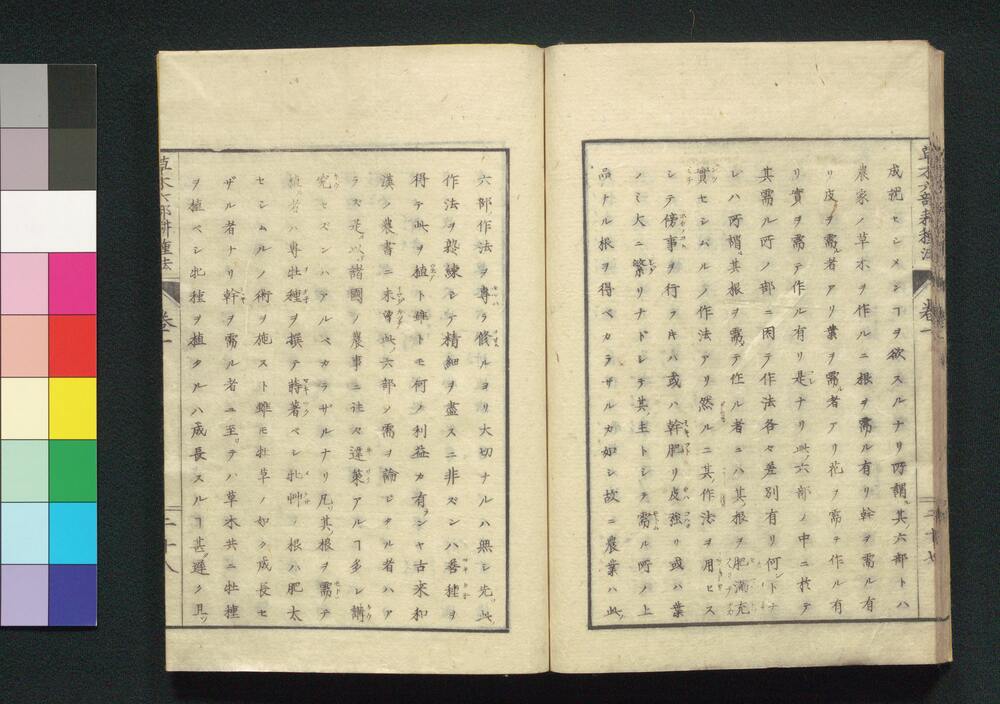 成就セシメンヿヲ欲スルナリ所謂其六部トハ
農家ノ草木ヲ作ルニ根ヲ需ル有リ幹ヲ需ル有
リ皮ヲ需ル者アリ葉ヲ需ル者アリ花ヲ需テ作ル有
リ實ヲ需テ作ル有リ是ナリ此六部ノ中ニ於テ
其需ル所ノ部ニ因テ作法各々差別有リ何ントナ
レハ所謂其根ヲ需テ作ル者ニハ其根ヲ肥満充
實セシムルノ作法アリ然ルニ其作法ヲ用セス
シテ傍事ヲ行フキハ或ハ幹肥リ皮強リ或ハ葉
ノミ大ニ繁リナドシテ其主トシテ需ル所ノ上
品ナル根ヲ得ベカラザルカ如シ故ニ農業ハ此
草木六部耕種法 巻一 二十七
六部作法ヲ專ラ修ルヨリ大切ナルハ無シ先此
作法ヲ鍛練シテ精細ヲ盡スニ非ズンハ善種ヲ
得テ此ヲ植ト雖トモ何ノ利益カ有ランヤ古来和
漢ノ農書ニ未曾此六部ノ需ヲ論ジタル者ハア
ラズ是以諸國ノ農事ニ往々違策アルヿ多シ講
究セズンハアルベカラサルナリ凡其根ヲ需テ
植ル者ハ專牡種ヲ撰テ蒔著ベシ牝艸ノ根ハ肥太
セシムルノ術ヲ施スト雖モ牡草ノ如ク成長セ
ザル者ナリ幹ヲ需ル者ニ至テハ草木共ニ牡種
ヲ植ベシ牝種ヲ植タルハ成長スルヿ甚遅ク且ツ
草木六部耕種法 巻一 二十八